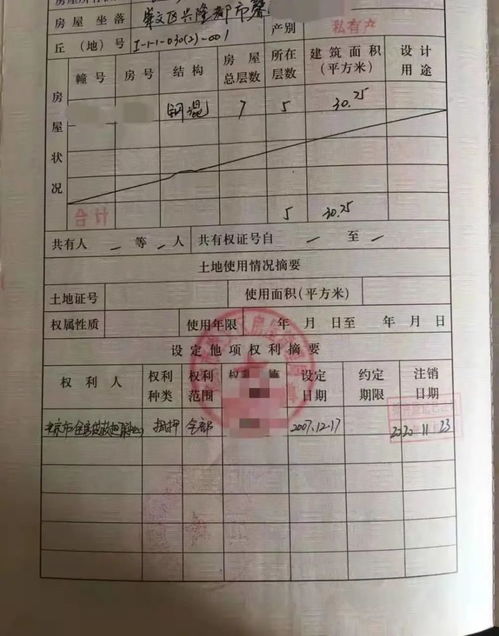 房屋坐落 崇文区兴隆都市馨
丘(地)号 I-1-1-030(2)-001 产别 私有产
幢号 房号 结构 房屋总层数 所在层数 建筑面积(平方米) 设计用途
房屋状况
钢混 7 5 30.25
合计 5 30.25
共有人 — 等 — 人 共有权证号自 — 至 —
土地使用情况摘要
土地证号 使用面积(平方米)
权属性质 使用年限 年 月 日至 年 月 日
设定他项权利摘要
权利人 权利种类 权利范围 权利 设定日期 约定期限 注销日期
北京市住房贷款担保中心 抵押 全部 2007.12.17 2020.11.23